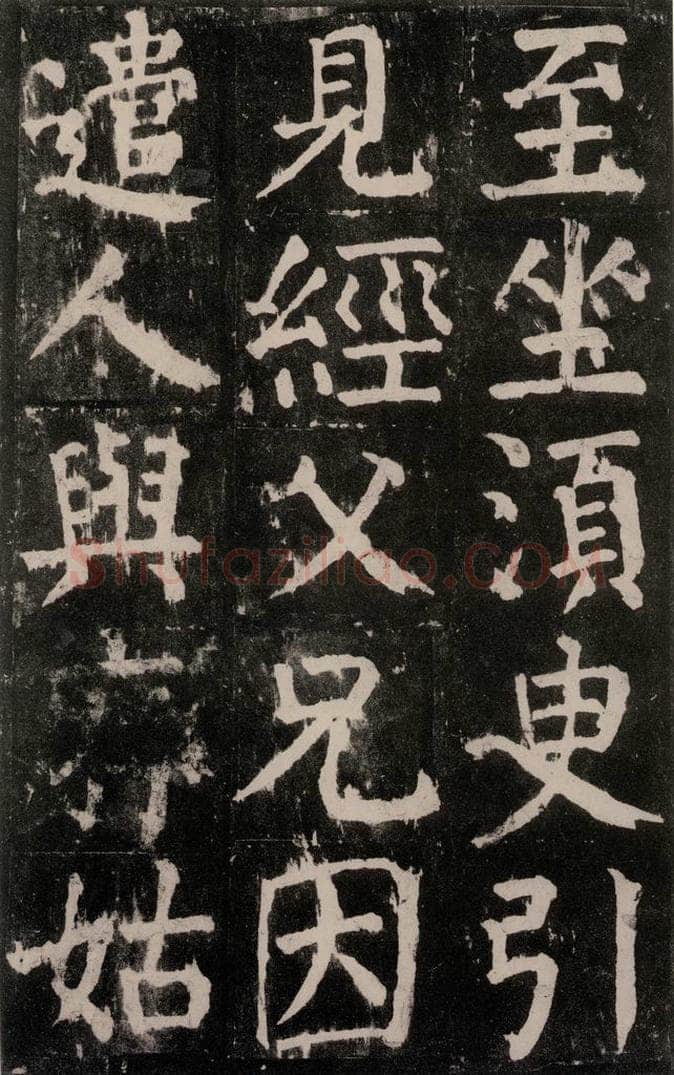 至坐湏臾引
見經父兄因
遣人與姑
Shufaziliao.COM